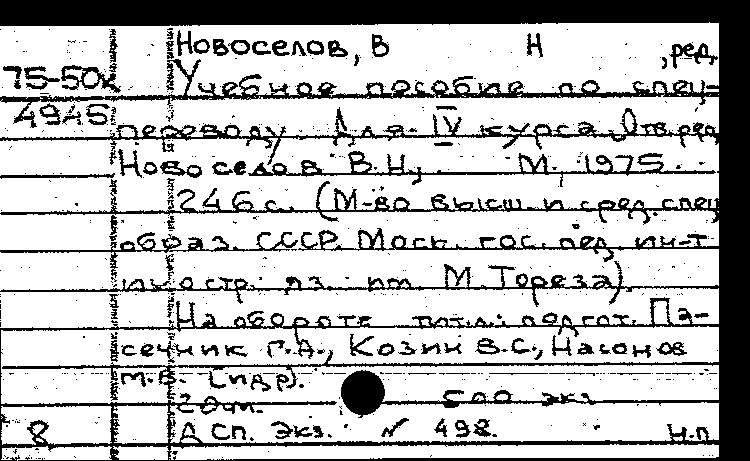 Новоселов, В Н ,ред.
75-50к Учебное пособие по спец-
4945 переводу. Для IV курса. Отв.ред.
Новоселов В.Н., М., 1975.
246с. (М-во высш и сред. спец
образ. СССР. Моск. гос. пед. ин-т
иностр. яз. им. М. Тореза).
На обороте тит.л.: подгот. Па-
сечник Г.А., Козин В.С., Насонов
М.В. (и др).
20 см. 500 экз
8 ДСП. Экз. № 498. Н.п